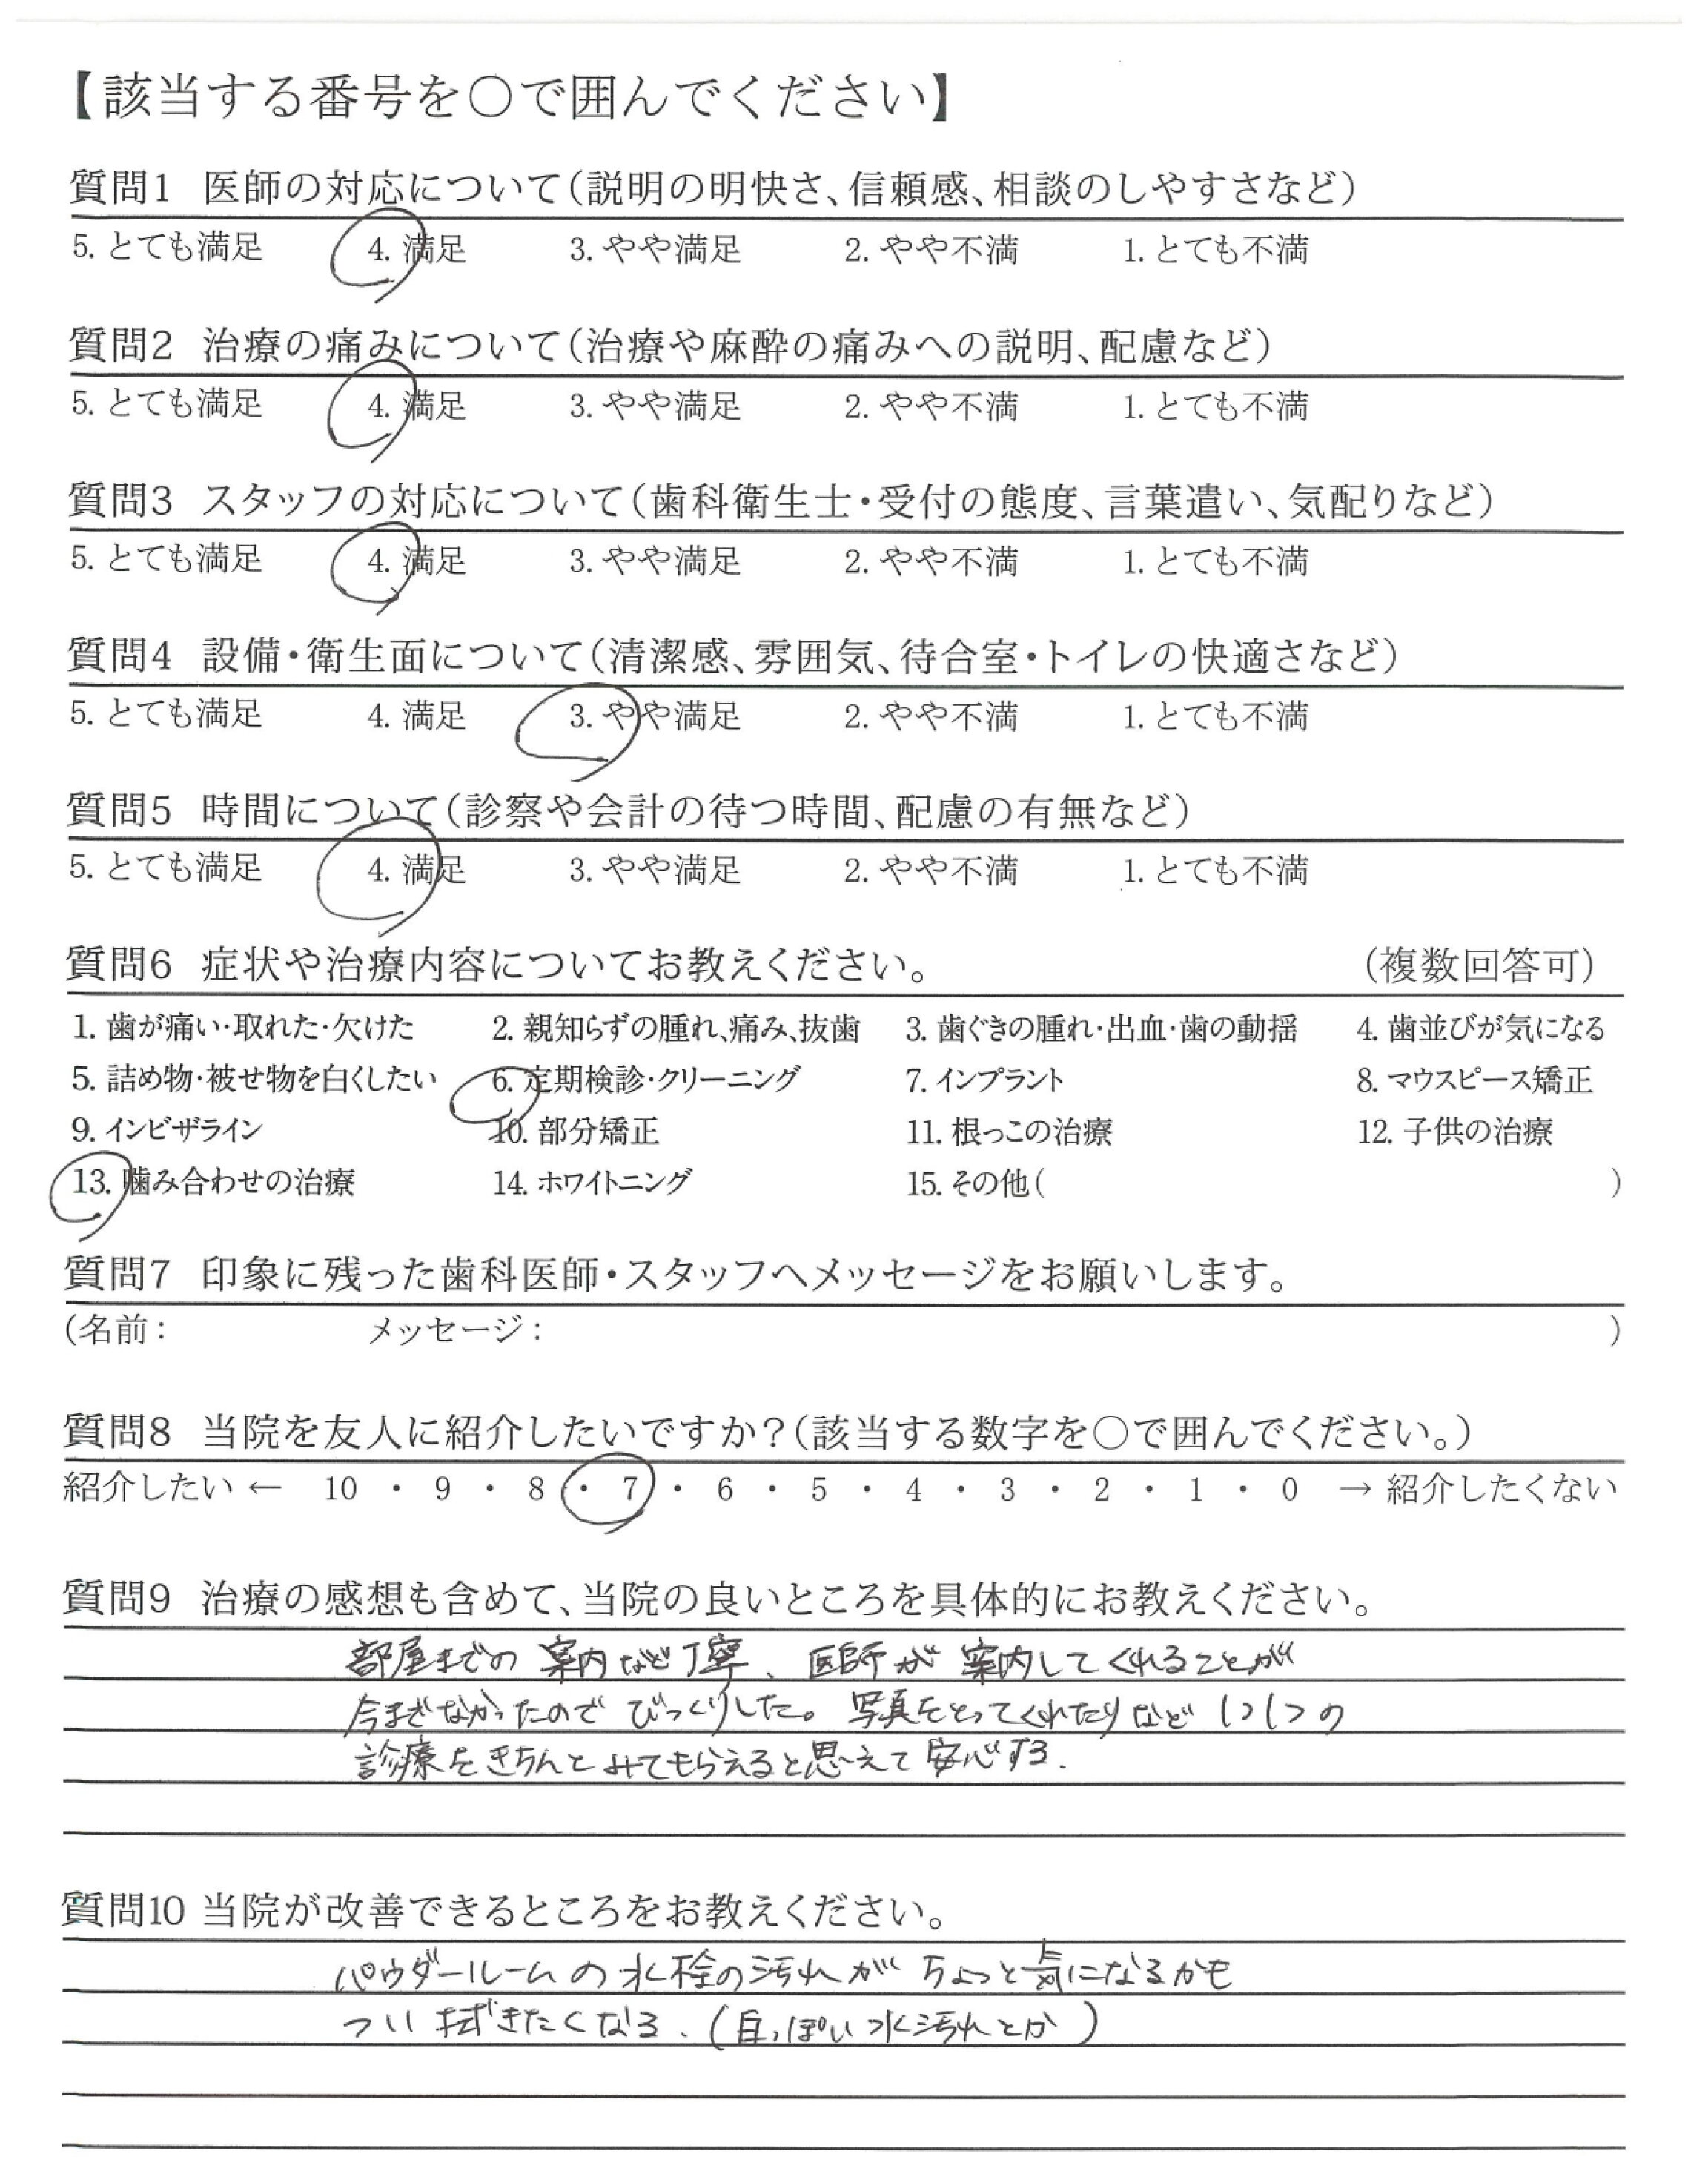 【該当する番号を〇で囲んでください】
質問1 医師の対応について(説明の明快さ、信頼感、相談のしやすさなど)
5. とても満足 4. 満足 3. やや満足 2. やや不満 1. とても不満
質問2 治療の痛みについて(治療や麻酔の痛みへの説明、配慮など)
5. とても満足 4. 満足 3. やや満足 2. やや不満 1. とても不満
質問3 スタッフの対応について(歯科衛生士・受付の態度、言葉遣い、気配りなど)
5. とても満足 4. 満足 3. やや満足 2. やや不満 1. とても不満
質問4 設備・衛生面について(清潔感、雰囲気、待合室・トイレの快適さなど)
5. とても満足 4. 満足 3. やや満足 2. やや不満 1. とても不満
質問5 時間について(診察や会計の待つ時間、配慮の有無など)
5. とても満足 4. 満足 3. やや満足 2. やや不満 1. とても不満
質問6 症状や治療内容についてお教えください。 (複数回答可)
1. 歯が痛い・取れた・欠けた 2. 親知らずの腫れ、痛み、抜歯 3. 歯ぐきの腫れ・出血・歯の動揺 4. 歯並びが気になる
5. 詰め物・被せ物を白くしたい 6. 定期検診・クリーニング 7. インプラント 8. マウスピース矯正
9. インビザライン 10. 部分矯正 11. 根っこの治療 12. 子供の治療
13. 噛み合わせの治療 14. ホワイトニング 15. その他( )
質問7 印象に残った歯科医師・スタッフへメッセージをお願いします。
(名前: メッセージ: )
質問8 当院を友人に紹介したいですか?(該当する数字を〇で囲んでください。)
紹介したい ← 10 ・ 9 ・ 8 ・ 7 ・ 6 ・ 5 ・ 4 ・ 3 ・ 2 ・ 1 ・ 0 → 紹介したくない
質問9 治療の感想も含めて、当院の良いところを具体的にお教えください。
部屋までの案内など丁寧、医師が案内してくれることが
今までなかったのでびっくりした。写真をとってくれたりなど1つ1つの
診療をきちんとみてもらえると思えて安心する.
質問10 当院が改善できるところをお教えください。
パウダールームの水栓の汚れがちょっと気になるかも
つい拭きたくなる.(白っぽい水汚れとか)